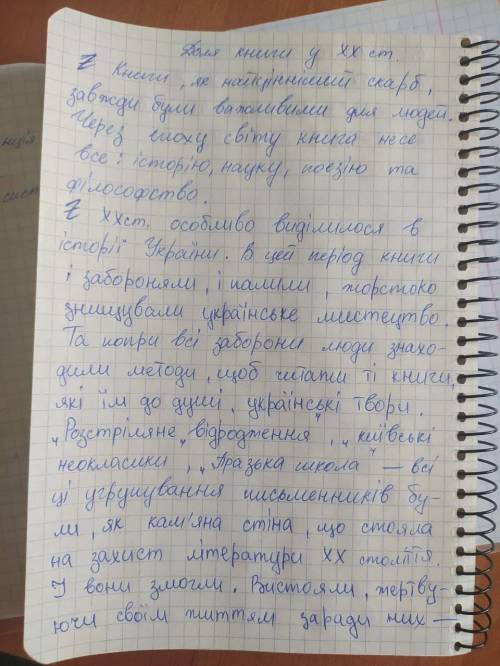 Доля книги у XX ст.
Z Книги, як найцінніший скарб,
завжди були важливими для людей.
Через епоху світу книга несе
все: історію, науку, поезію та
філософство.
Z XXст. особливо виділилося в
історії України. В цей період книги
і забороняли, і палили, жорстоко
знищували українське мистецтво.
Та попри всі заборони люди знахо-
дили методи, щоб читати ті книги,
які їм до душі, українські твори.
„Розстріляне„ відродження, „київські
неокласики, „Празька школа — всі
ці угрупування письменників бу-
ли, як кам'яна стіна, що стояла
на захист літератури XX століття.
І вони змогли. Вистояли, жертву-
ючи своїм життям заради них —
нція
сист